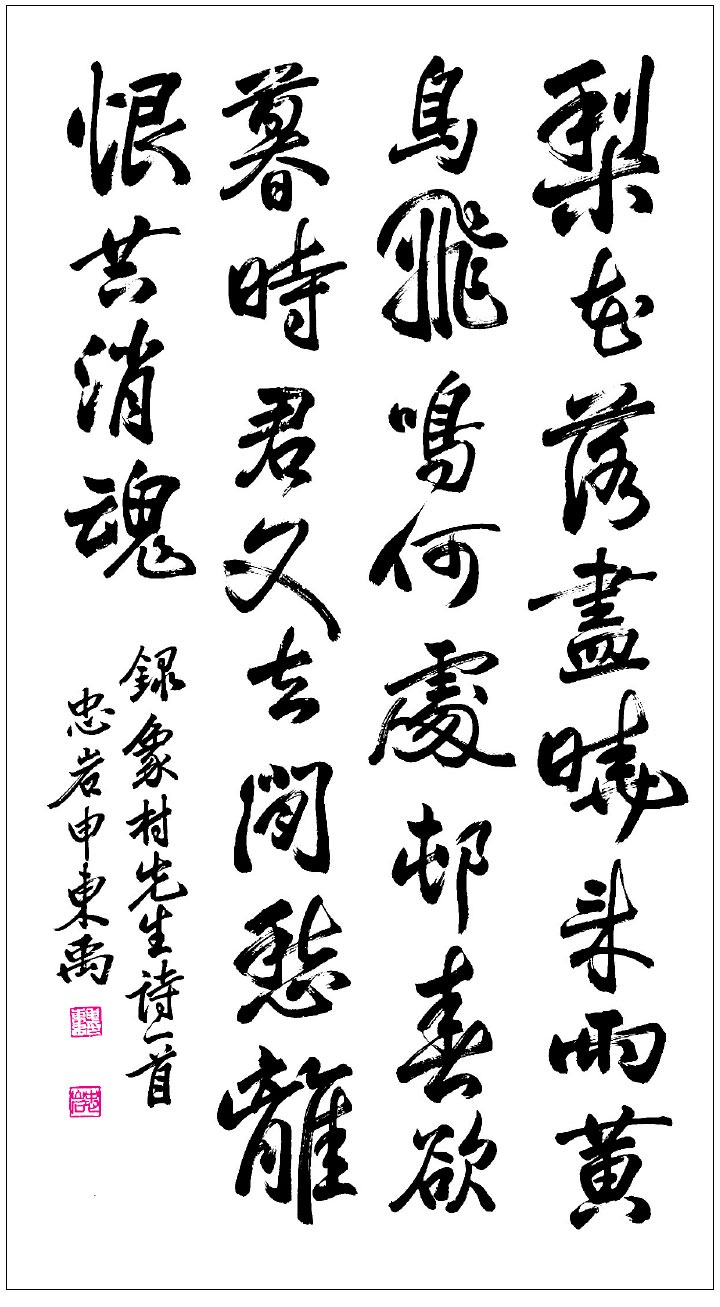 梨花落盡曉來雨黃
鳥飛鳴何處邨春欲
暮時君又去閒愁離
恨共消魂
錄象村先生詩一首
忠岩申東禹